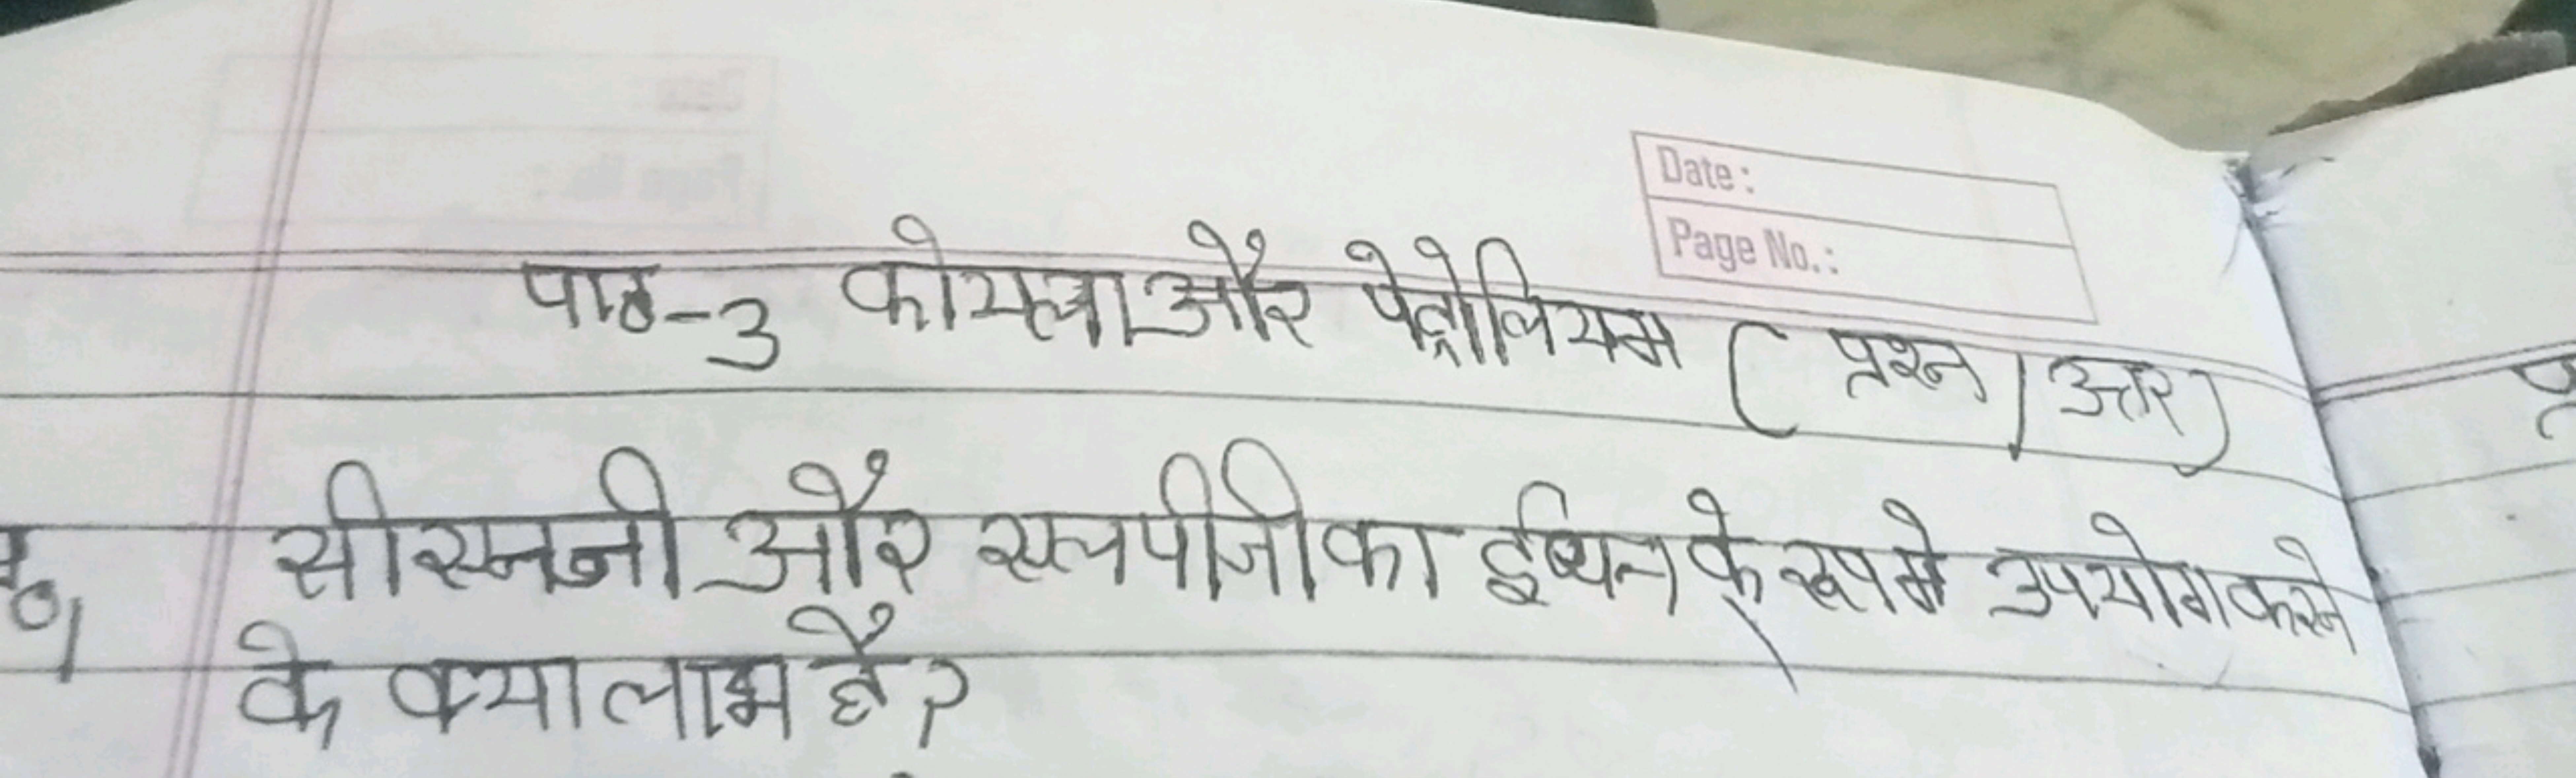 Date :
Page No. :
पाठ-3 कोयला और पेट्रोलियम ( प्रश्न / उत्तर )
सीएनजी और एलपीजी का ईंधन के रूप मे उपयोग करने
के क्या लाभ है ?